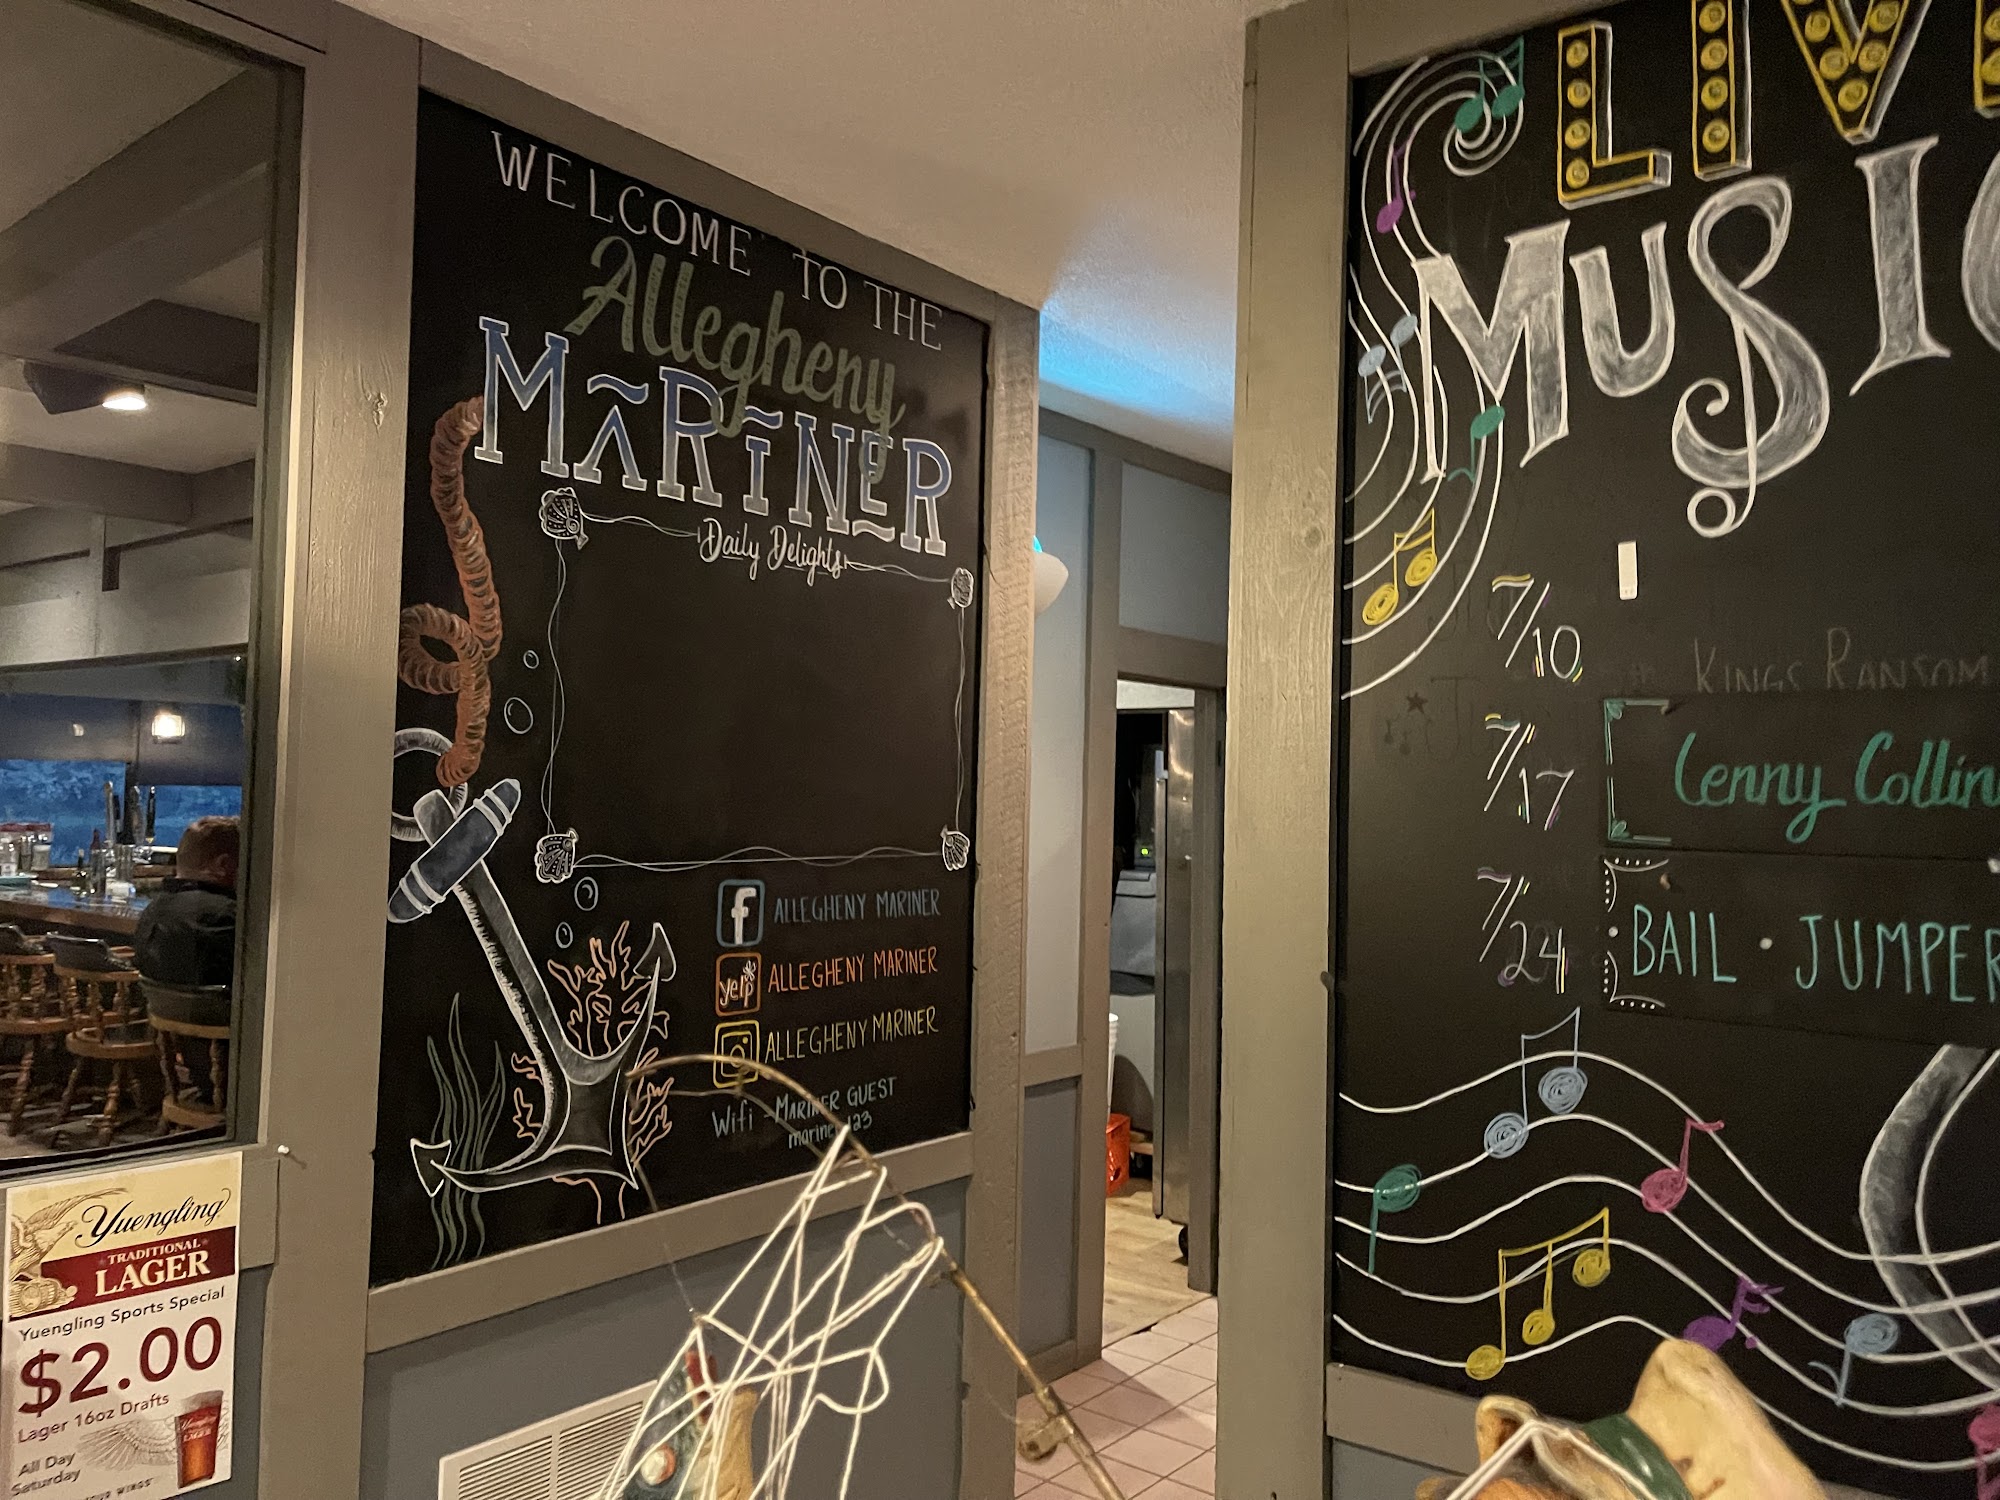 WELCOME TO THE
Allegheny
MARINER
Daily Delights
f ALLEGHENY MARINER
yelp ALLEGHENY MARINER
ALLEGHENY MARINER
Wifi - MARINER GUEST
LIVE
MUSIC
7/10
KINGS RANSOM
7/17
Lenny Collin
7/24
BAIL · JUMPER
Yuengling
TRADITIONAL
LAGER
Yuengling Sports Special
$2.00
Lager 16oz Drafts
All Day
Saturday